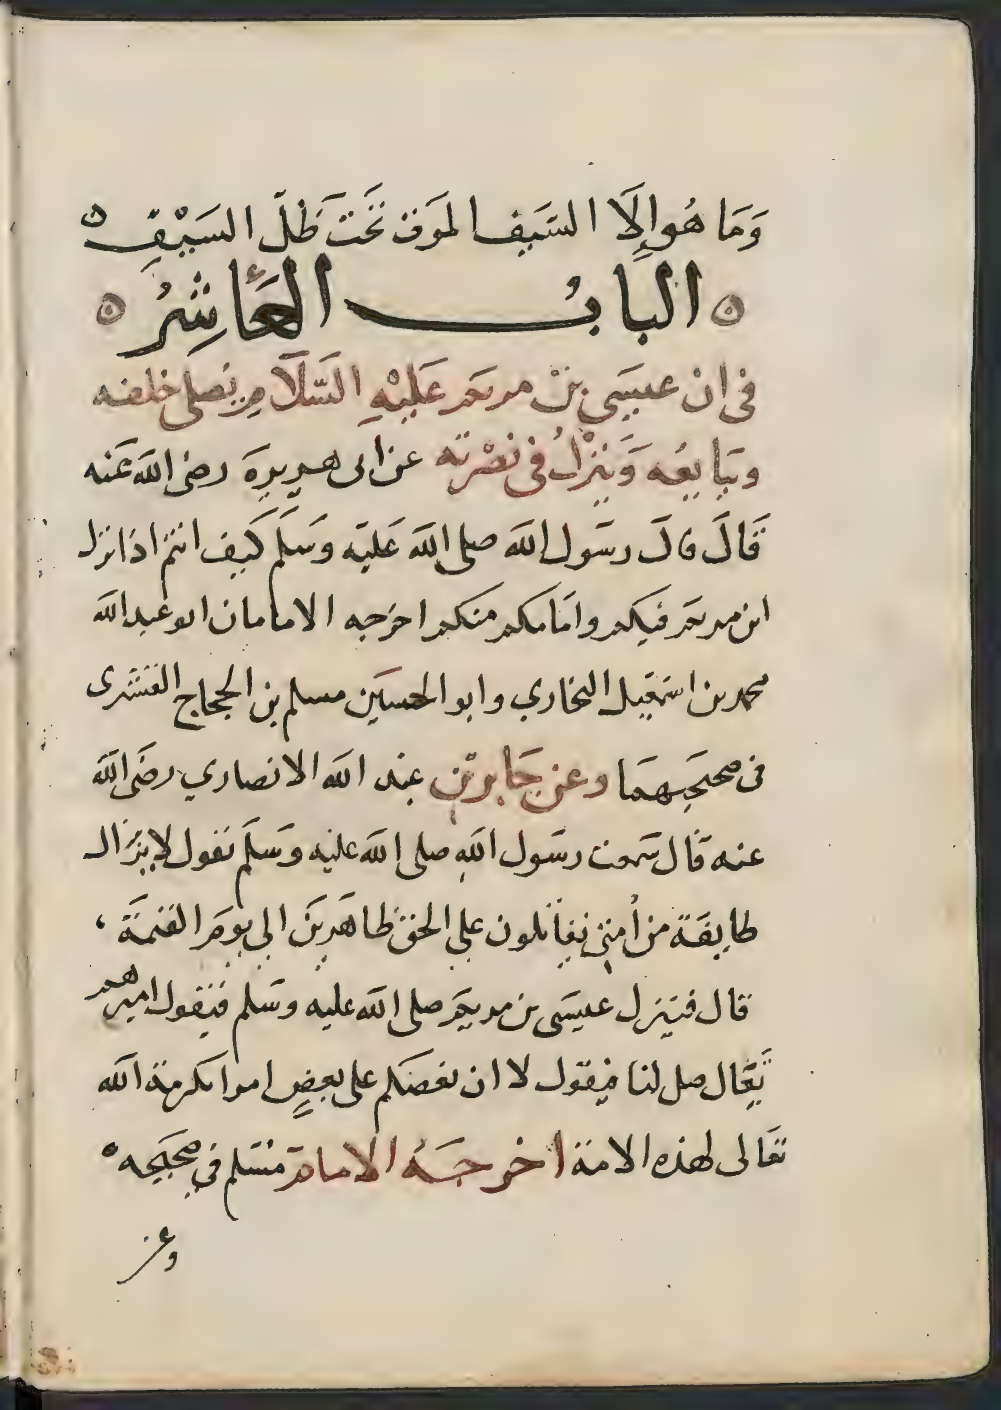 وَمَا هُو إلَّا السَيف المَوت تَحَت ظَلّ السَيْفِ ه
ه البابُ العَاشِرُ ه
فى ان عيسَى بِنْ مريَمَ عَليْهِ السَّلَامِ يصلى خلفه
ويبَايعُه وَيَنْزلُ فى نصْرته عن ابى هريرة رضى الله عَنه
قَالَ قالَ رسَول الله صلى الله عَليَه وَسَلَم كَيف انتم اذا نزل
ابن مريَم فيكم وامَامكم منكم اخرجه الامامان ابو عبد الله
محمد بن اسمعَيل البخاري وابو الحسَين مسلم بن الحجاج القشيرى
فى صحيحَيهمَا وعن جَابر بن عبد الله الانصاري رضَى الله
عنه قال سمعت رسَول الله صلى الله عليه وسَلم يقول لا يزال
طايفَة من اُمتى يقَاتلون على الحق ظاهرينَ الى يومَ القيمَة ،
قال فينزل عيسَى بن مريَم صلى الله عليه وسَلم فيقول اميرهم
تعَال صل لنا فيقول لا ان بعضكم على بعضٍ امرا تكرمة الله
تعَالى لهذه الامة اخرجَهُ الامام مُسَلم فى صحيَحه ه
وعن